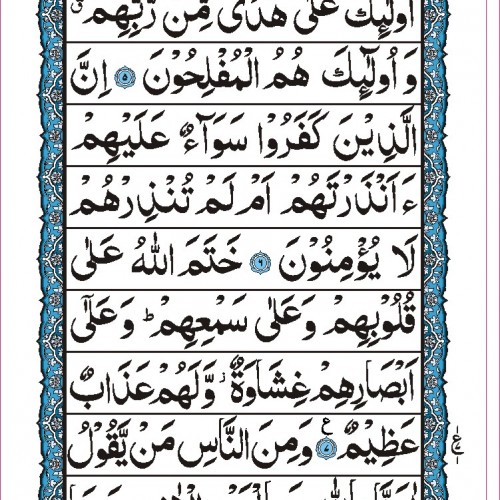 اُولٰٓئِكَ عَلٰى هُدًى مِّنْ رَّبِّهِمْ ۗ
وَ اُولٰٓئِكَ هُمُ الْمُفْلِحُوْنَ ۵ اِنَّ
الَّذِيْنَ كَفَرُوْا سَوَآءٌ عَلَيْهِمْ
ءَاَنْذَرْتَهُمْ اَمْ لَمْ تُنْذِرْهُمْ
لَا يُؤْمِنُوْنَ ۶ خَتَمَ اللّٰهُ عَلٰى
قُلُوْبِهِمْ وَعَلٰى سَمْعِهِمْ ؕ وَعَلٰٓى
اَبْصَارِهِمْ غِشَاوَةٌ ۡ وَّلَهُمْ عَذَابٌ
عَظِيْمٌ ۷ ع وَمِنَ النَّاسِ مَنْ يَّقُوْلُ